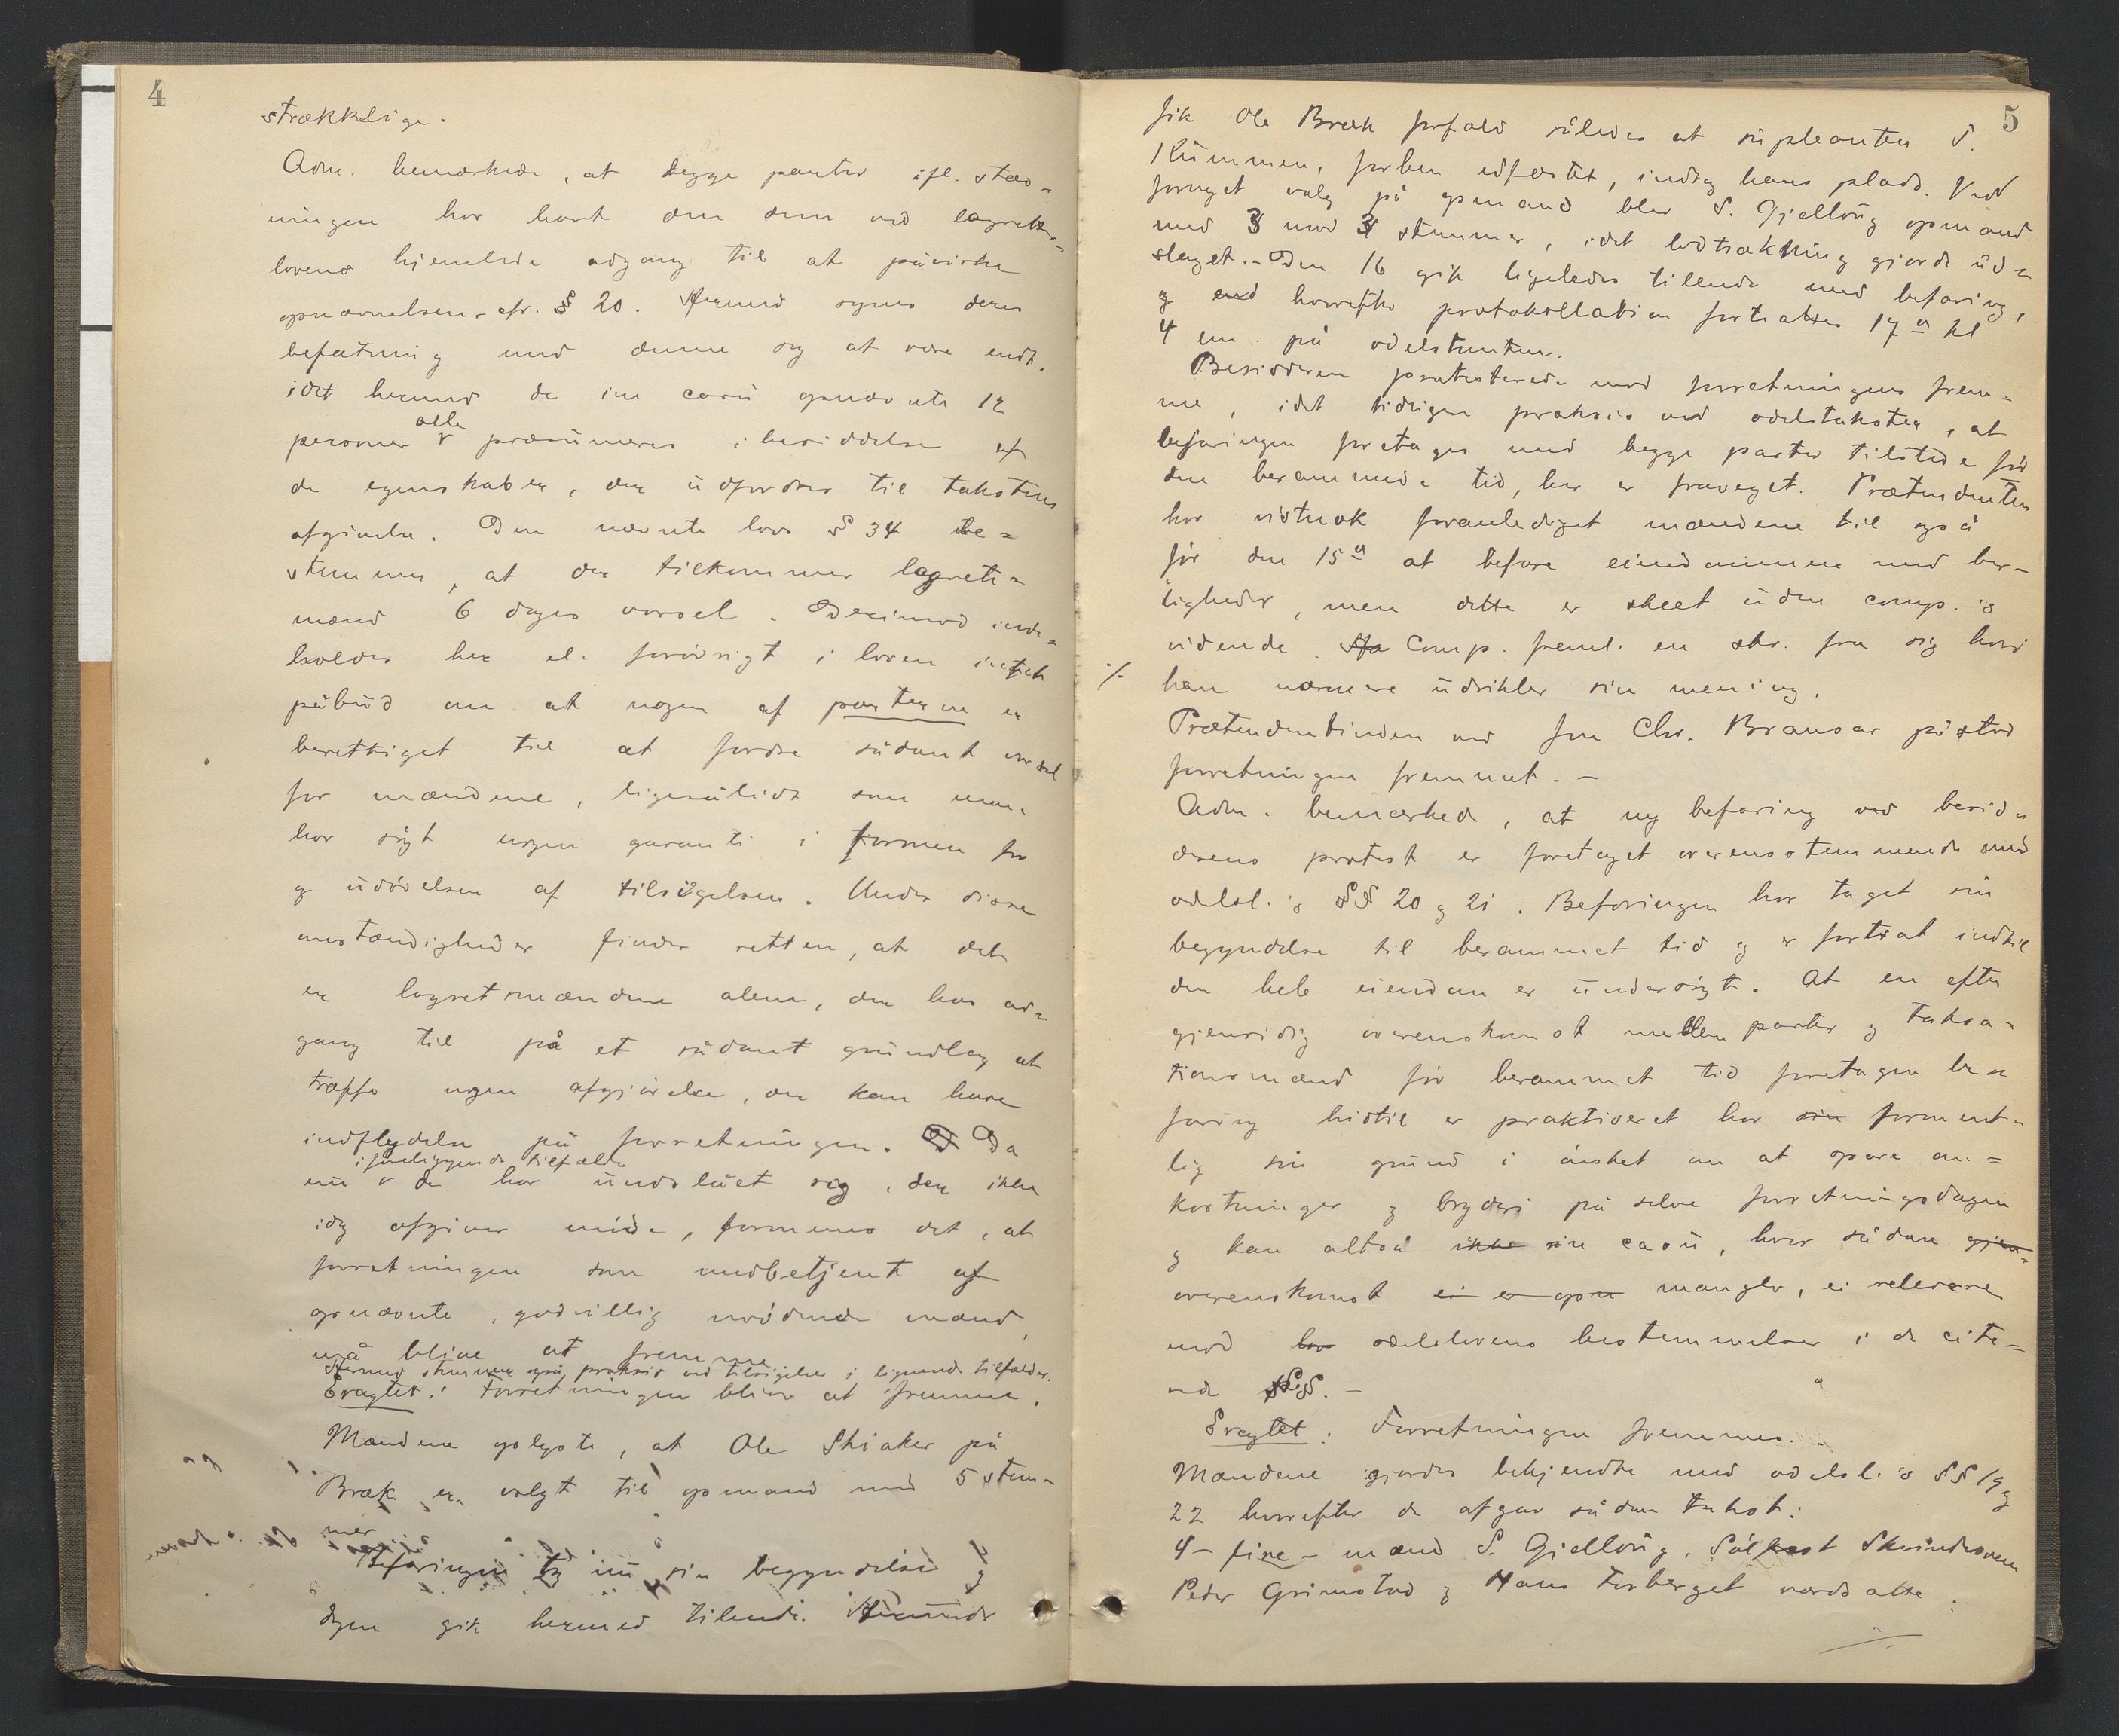 4
strækkelige.
Adm. bemærkede, at begge parter ifl. stæv=
ningen har havt den dem ved lagrets=
lovens hjemlede adgang til at påvirke
opnævnelsen, cfr. § 20. Hermed synes deres
befatning med denne sig at være endt,
idet hermed de in casu opnævnte 12
alle
personer v præsumeres i besiddelse af
de egenskaber, der udfordres til takstens
afgivelse. Den nævnte lovs § 34 be=
stemmer, at der tilkommer lagrets=
mænd 6 dages varsel. Derimod inde=
holdes her el. forøvrigt i loven intet
påbud om at nogen af parterne er
berettiget til at fordre sådant varsel
for mændene, ligesålidt som man
har søgt nogen garanti i formen for
og udøvelsen af tilsigelsen. Under disse
omstændigheder finder retten, at det
er lagretsmændene alene, der har ad=
gang til på et sådant grundlag at
træffe nogen afgjørelse, der kan have
indflydelse på forretningen. D Da
i foreliggende tilfælde
nu v de har undslået sig, der ikke
idag afgiver møde, formenes det, at
forretningen som medbetjent af
opnævnte, godvillig mødende mænd,
må blive at fremme
Hermed stemmer også praksis ved tilsigelser i lignende tilfælder.
Eragtet: Forretningen bliver at fremme.
Mændene oplyste, at Ole Skiaker på
Bræk er valgt til opmand med 5 stem=
mer
Befaringen tog nu sin begyndelse og
dagen gik hermed tilende. Herunder
5
fik Ole Bræk forfald således at supleanten S.
Kummen, forhen edfæstet, indtog hans plads. Ved
fornyet valg på opmand blev S. Gjelloug opmand
med 3 mod 3 stemmer, idet lodtrækning gjorde ud=
slaget. - Den 16 gik ligeledes tilende med befaring,
og hvorefter protokollation fortsattes 17de kl
4 em. på odelstomten.
Besidderen protesterede mod forretningens frem=
me, idet tidligere praksis ved odelstakster, at
befaringen foretages med begge parter tilstede før
den berammede tid, her er fraveget. Prætendenten
har vistnok foranlediget mændene til også
før den 15de at befare eiendommene med her=
ligheder, men dette er skeet uden comp.'s
vidende. Ha Comp. freml. en skr. fra sig hvori
./. han nærmere udvikler sin mening.
Prætendentinden ved fm Chr. Bransar påstod
forretningen fremmet. -
Adm. bemærkede, at ny befaring ved besid=
derens protest er foretaget overensstemmende med
odelsl.'s §§ 20 og 21. Befaringen har taget sin
begyndelse til berammet tid og er fortsat indtil
den hele eiendom er undersøgt. At en efter
gjensidig overenskomst mellem parter og taksa=
tionsmænd før berammet tid foretagen be=
faring hidtil er praktiseret har sin forment=
lig sin grund i ønsket om at spare om=
kostninger og bryderi på selve forretningsdagen
og kan altså ikke in casu, hvor sådan gjen=
overenskomst ei er opn mangler, ei relevere
mod lov odelslovens bestemmelser i de cite=
rede §§. -
Eragtet: Forretningen fremmes.
Mændene gjordes bekjendte med odelsl.'s §§ 19 og
22 hvorefter de afgav sådan takst:
4 - fire - mænd S. Gjelloug, Sølfest Skindroveen
Peder Grimstad og Hans Forberget værdsatte: